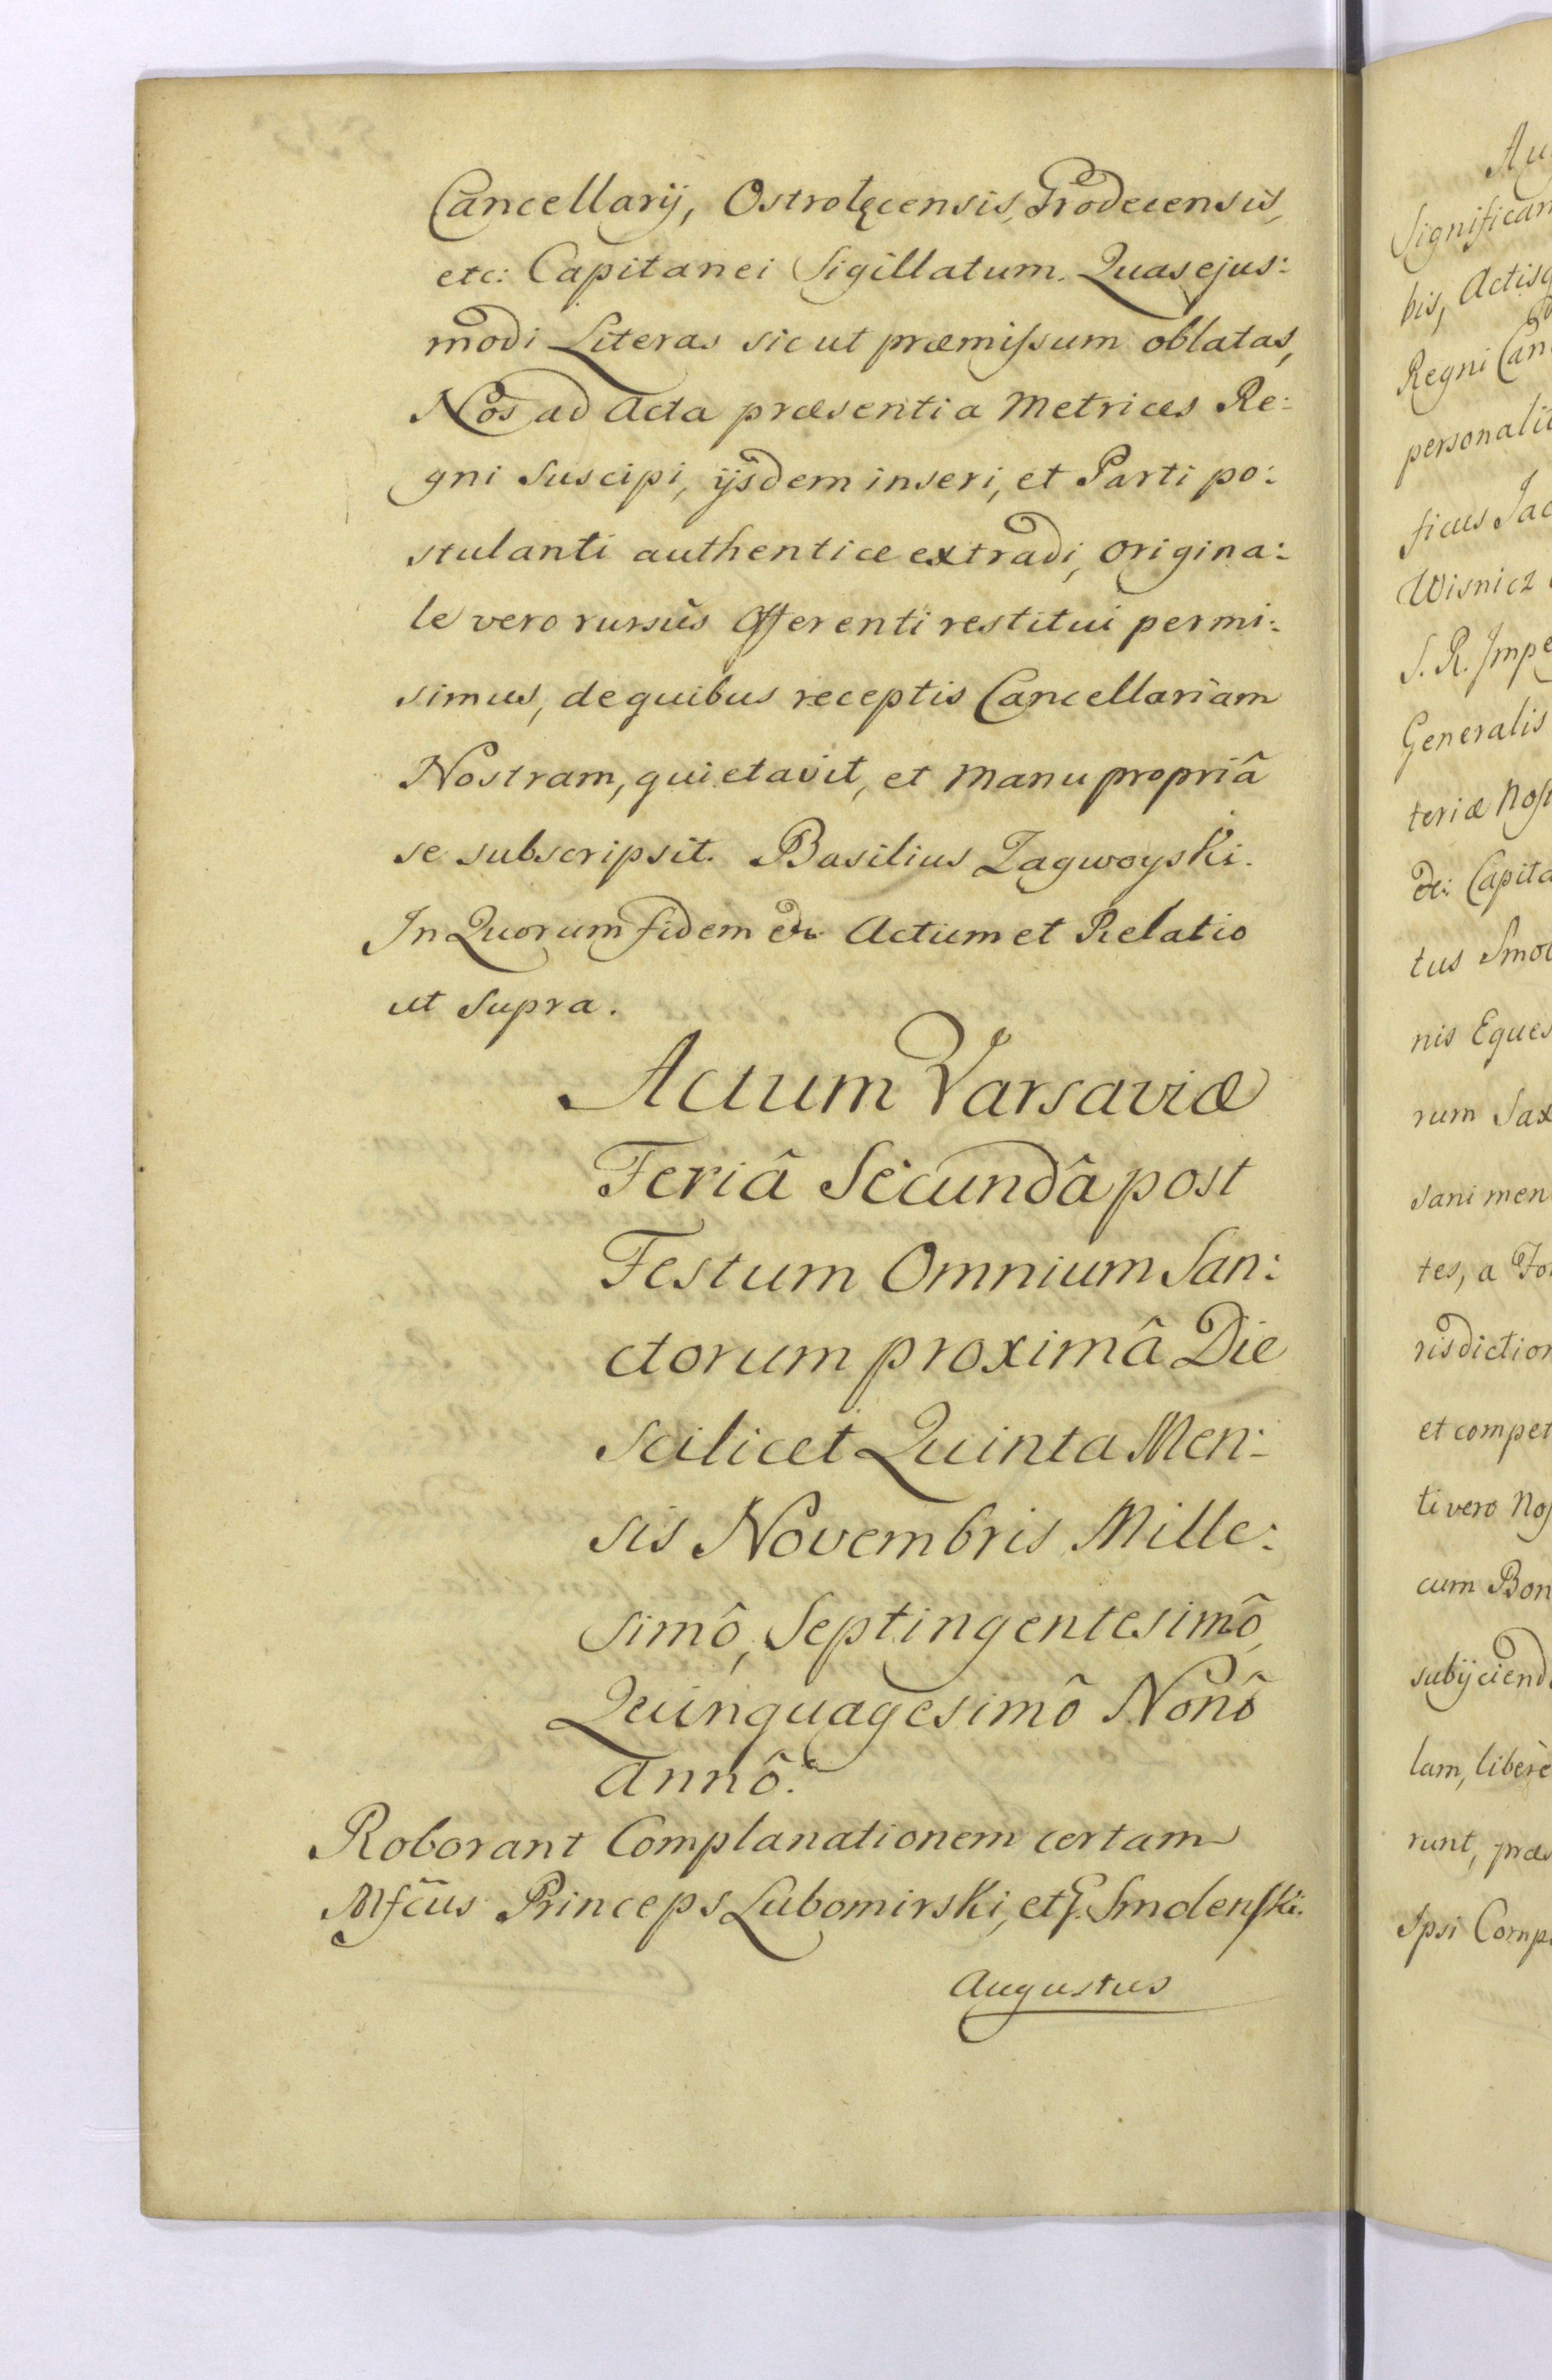 Cancellarij, Ostrołęcensis, Grodecensis,
etc: Capitanei Sigillatum. Quas ejus:
modi Literas sicut præmissum oblatas,
Nos ad Acta præsentia Metrices Re:
gni Suscipi, ijsdem inseri, et Parti po:
stulanti authentice extradi, origina:
le vero rursùs Offerenti restitui permi:
simus, de quibus receptis Cancellariam
Nostram, quietavit, et Manu propriâ
se subscripsit. Basilius Zagwoyski.
In Quorum fidem etc Actum et Relatio
ut Supra.
Actum Varsaviæ
Feriâ Secundâ post
Festum Omnium San:
ctorum proximâ Die
scilicet Quinta Men:
sis Novembris Mille:
simô, Septingentesimô,
Quinquagesimô Nonô
Annô.
Roborant Complanationem certam
Mfcus Princeps Lubomirski, et G. Smolenski.
Augustus
Significan
bis, Actisq
Regni Can
personalit
ficus Jac
Wisnicz
S. R. Impe
Generalis
teriæ Nos
etc: Capita
tus Smol
nis Eques
rum Sax
sani men
tes, a Fo
risdiction
et compet
ti vero Nos
cum Bon
subijciend
lam, liberè
runt, præs
Ipsi Comp